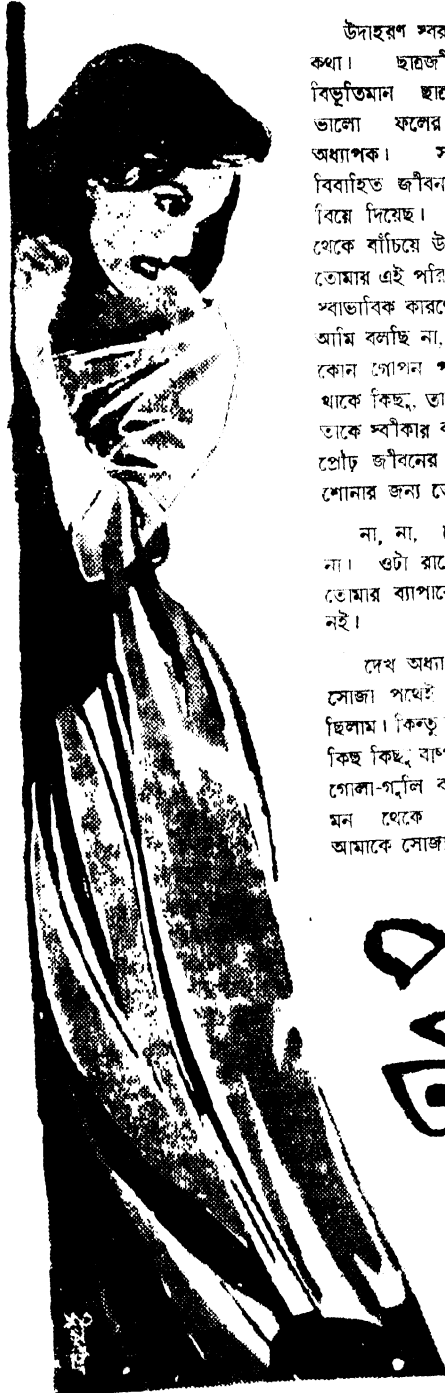 উদাহরণ স্বর
কথা। ছাত্রজী
বিভূতিমান ছাত্রে
ভালো ফলের
অধ্যাপক। স
বিবাহিত জীবন
বিয়ে দিয়েছ।
থেকে বাঁচিয়ে উ
তোমার এই পরি
স্বাভাবিক কারণে
আমি বলছি না,
কোন গোপন প
থাকে কিছু, তা
তাকে স্বীকার ক
প্রৌঢ় জীবনের
শোনার জন্য তে
না, না,
না। ওটা রাখে
তোমার ব্যাপারে
নই।
দেখ অধ্যা
সোজা পথেই
ছিলাম। কিন্তু
কিছু কিছু বাষ্প
গোলা-গুলি ব
মন থেকে
আমাকে সোজা